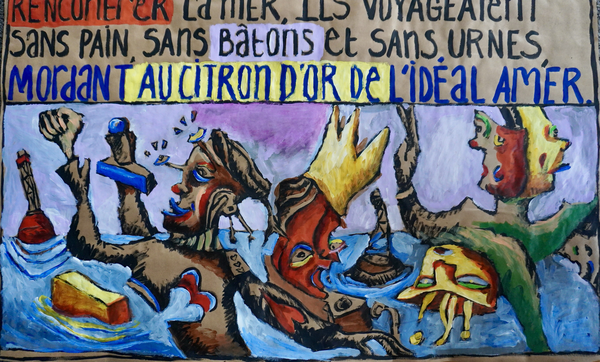 RENCONTRER La MER, ILS VOYAGEAIENT
SANS PAIN, SANS BÂTONS et SANS URNES,
MORDANT AU CITRON D'OR DE L'IDÉAL AMER.